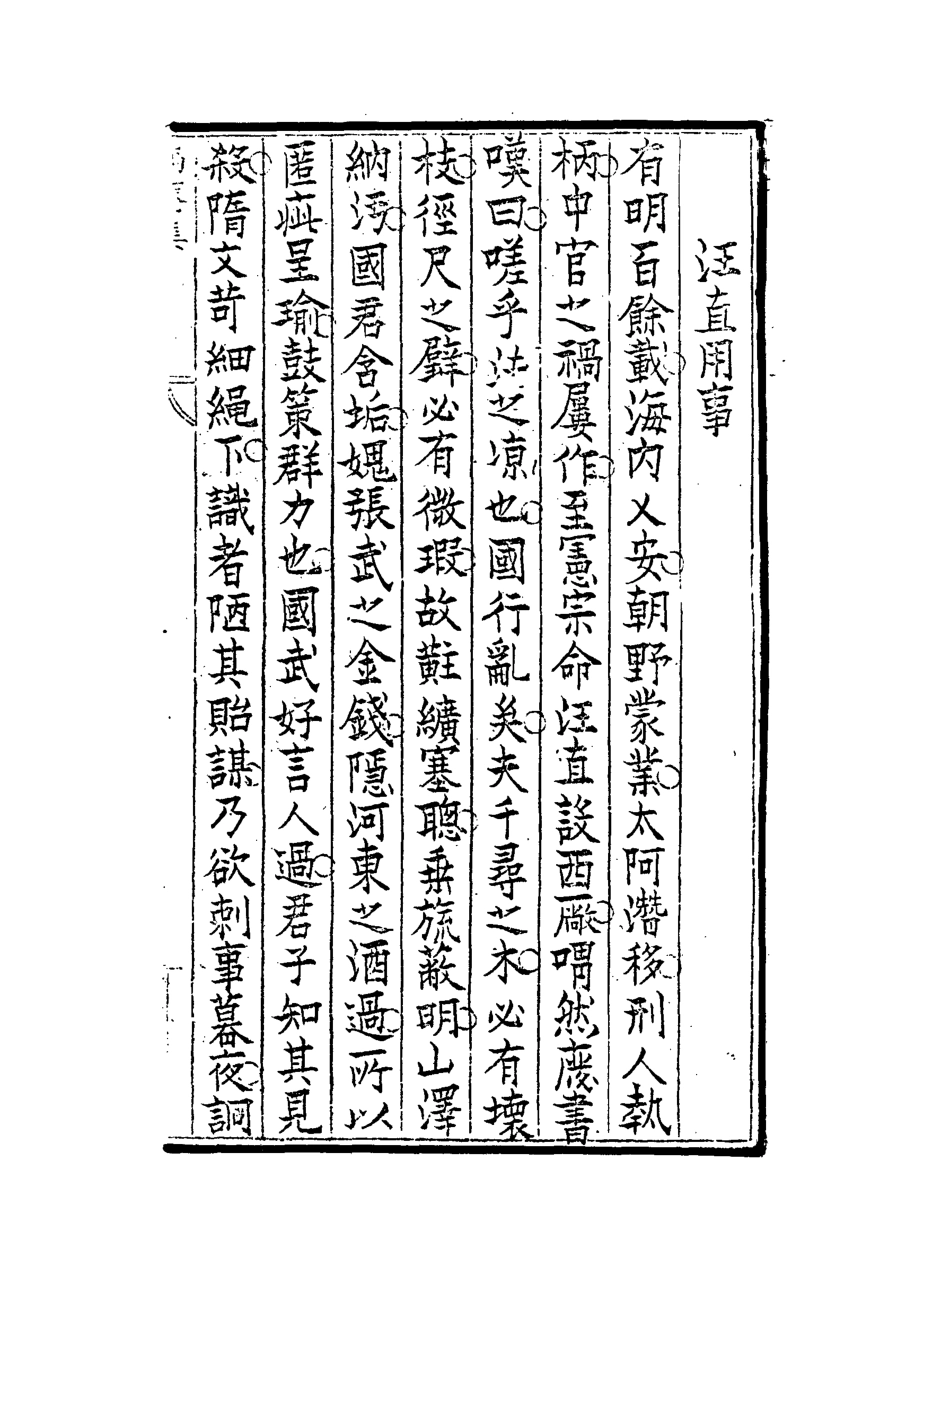 汪直用事
有明百餘載海内乂安朝野蒙業太阿潛移刑人執
柄中官之禍屢作至憲宗命汪直設西厰喟然廢書
嘆曰嗟乎法之凉也國行亂矣夫千尋之木必有壞
枝徑尺之璧必有微瑕故黈纊塞聰垂旒蔽明山澤
納汚國君含垢媿張武之金錢隱河東之酒過所以
匿疵呈瑜鼓策群力也國武好言人過君子知其見
殺隋文苛細繩下識者陋其貽謀乃欲刺事暮夜詗